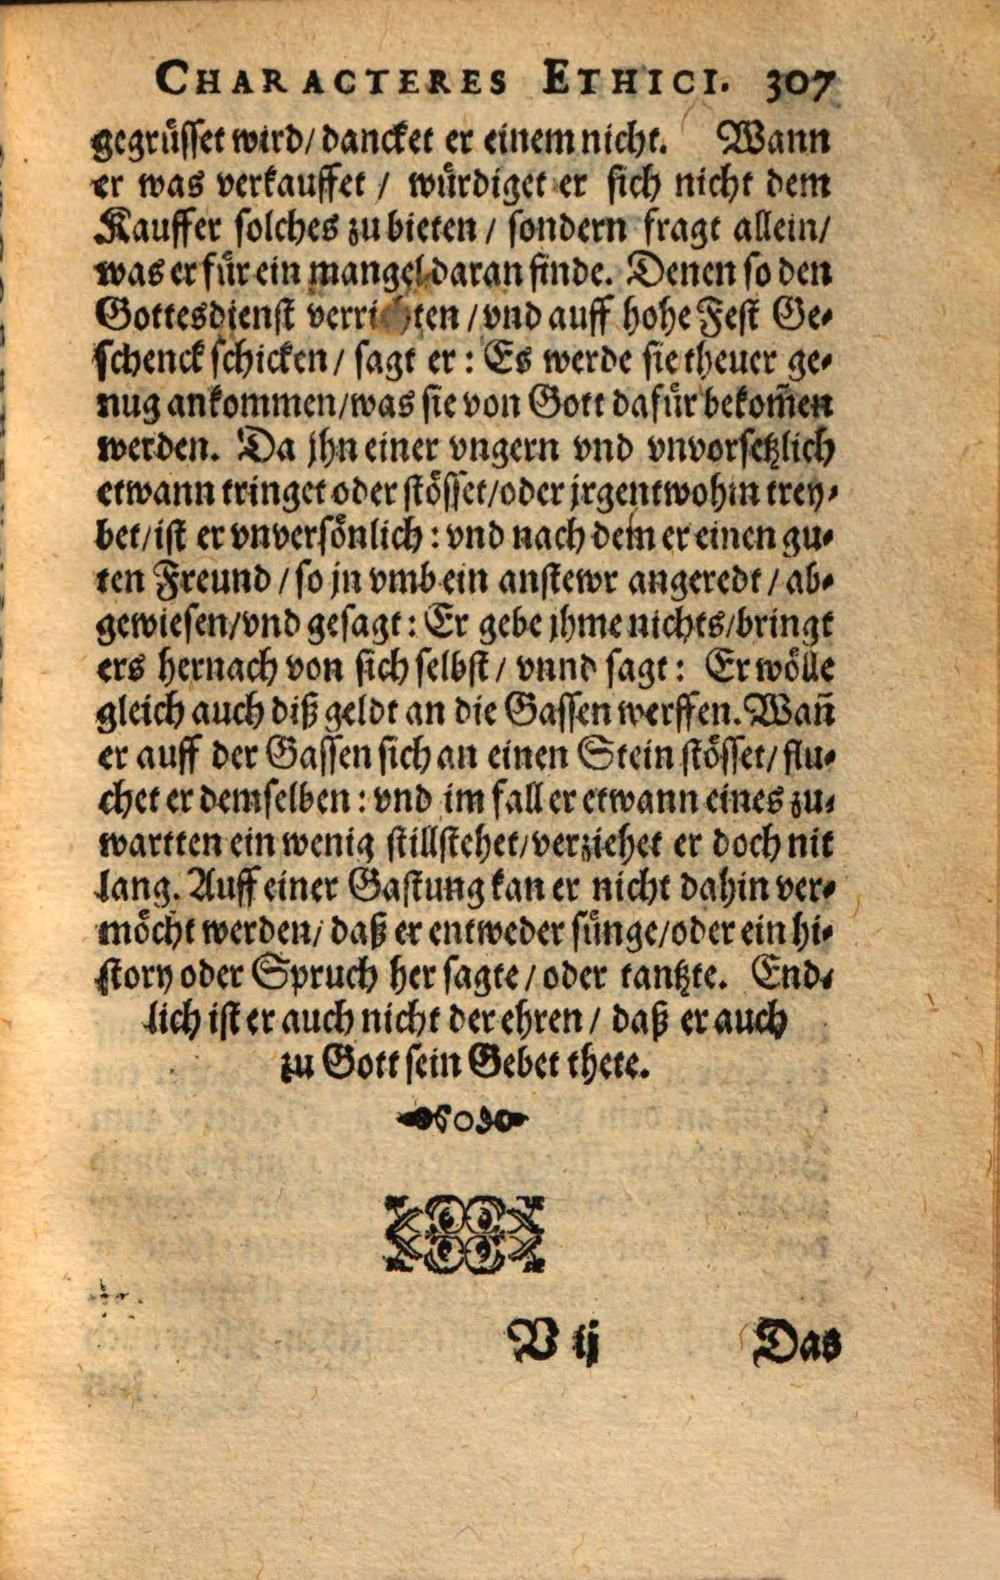 CHARACTERES ETHICI. 307
gegrüsset wird/ dancket er einem nicht. Wann
er was verkauffet / würdiget er sich nicht dem
Kauffer solches zu bieten / sondern fragt allein/
was er für ein mangel daran finde. Denen so den
Gottesdienst verrichten / vnd auff hohe Fest Ge-
schenck schicken / sagt er : Es werde sie theuer ge-
nug ankommen/was sie von Gott dafür bekom̃en
werden. Da jhn einer vngern vnd vnvorsetzlich
etwann tringet oder stösset/oder jrgentwohin trey-
bet/ist er vnversönlich : vnd nach dem er einen gu-
ten Freund / so jn vmb ein anstewr angeredt / ab-
gewiesen/vnd gesagt : Er gebe jhme nichts/bringt
ers hernach von sich selbst / vnnd sagt : Er wölle
gleich auch diß geldt an die Gassen werffen. Wañ
er auff der Gassen sich an einen Stein stösset/ flu-
chet er demselben : vnd im fall er etwann eines zu-
wartten ein wenig stillstehet/verziehet er doch nit
lang. Auff einer Gastung kan er nicht dahin ver-
möcht werden/ daß er entweder sünge/oder ein hi-
story oder Spruch her sagte / oder tantzte. End-
lich ist er auch nicht der ehren / daß er auch
zu Gott sein Gebet thete.
V ij Das